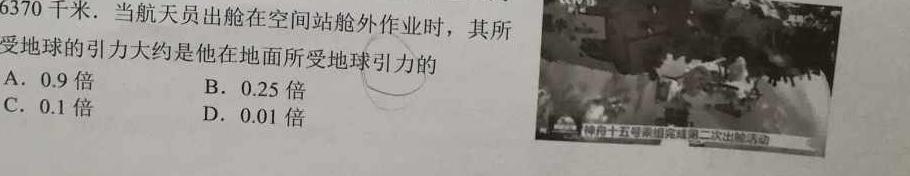 6370 千米．当航天员出舱在空间站舱外作业时，其所
受地球的引力大约是他在地面所受地球引力的
A．0.9 倍
B．0.25 倍
C．0.1 倍
D．0.01 倍
神舟十五号乘组完成第二次出舱活动